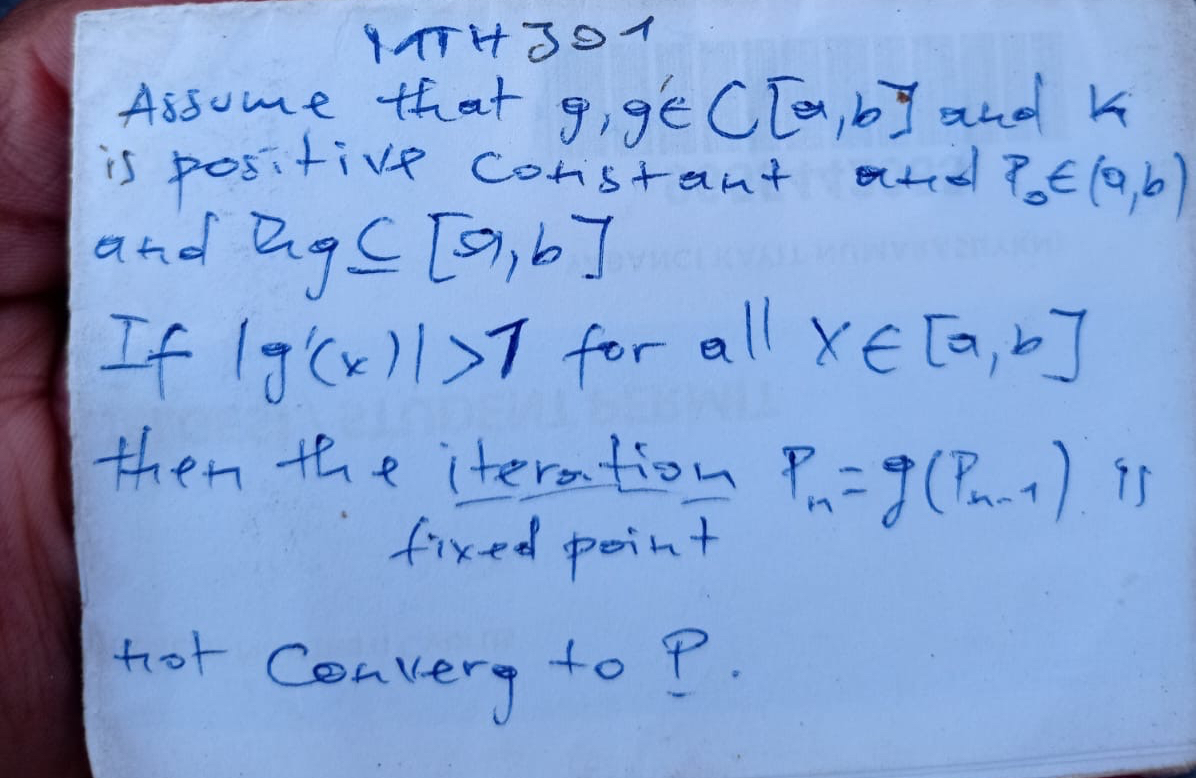 MTH 301
Assume that g, g' ∈ C[a,b] and K
is positive constant and P₀ ∈ (a,b)
and Rg ⊆ [a,b]
If |g'(x)| > 1 for all x ∈ [a,b]
then the iteration Pₙ = g(Pₙ₋₁) is
fixed point
not converg to P.